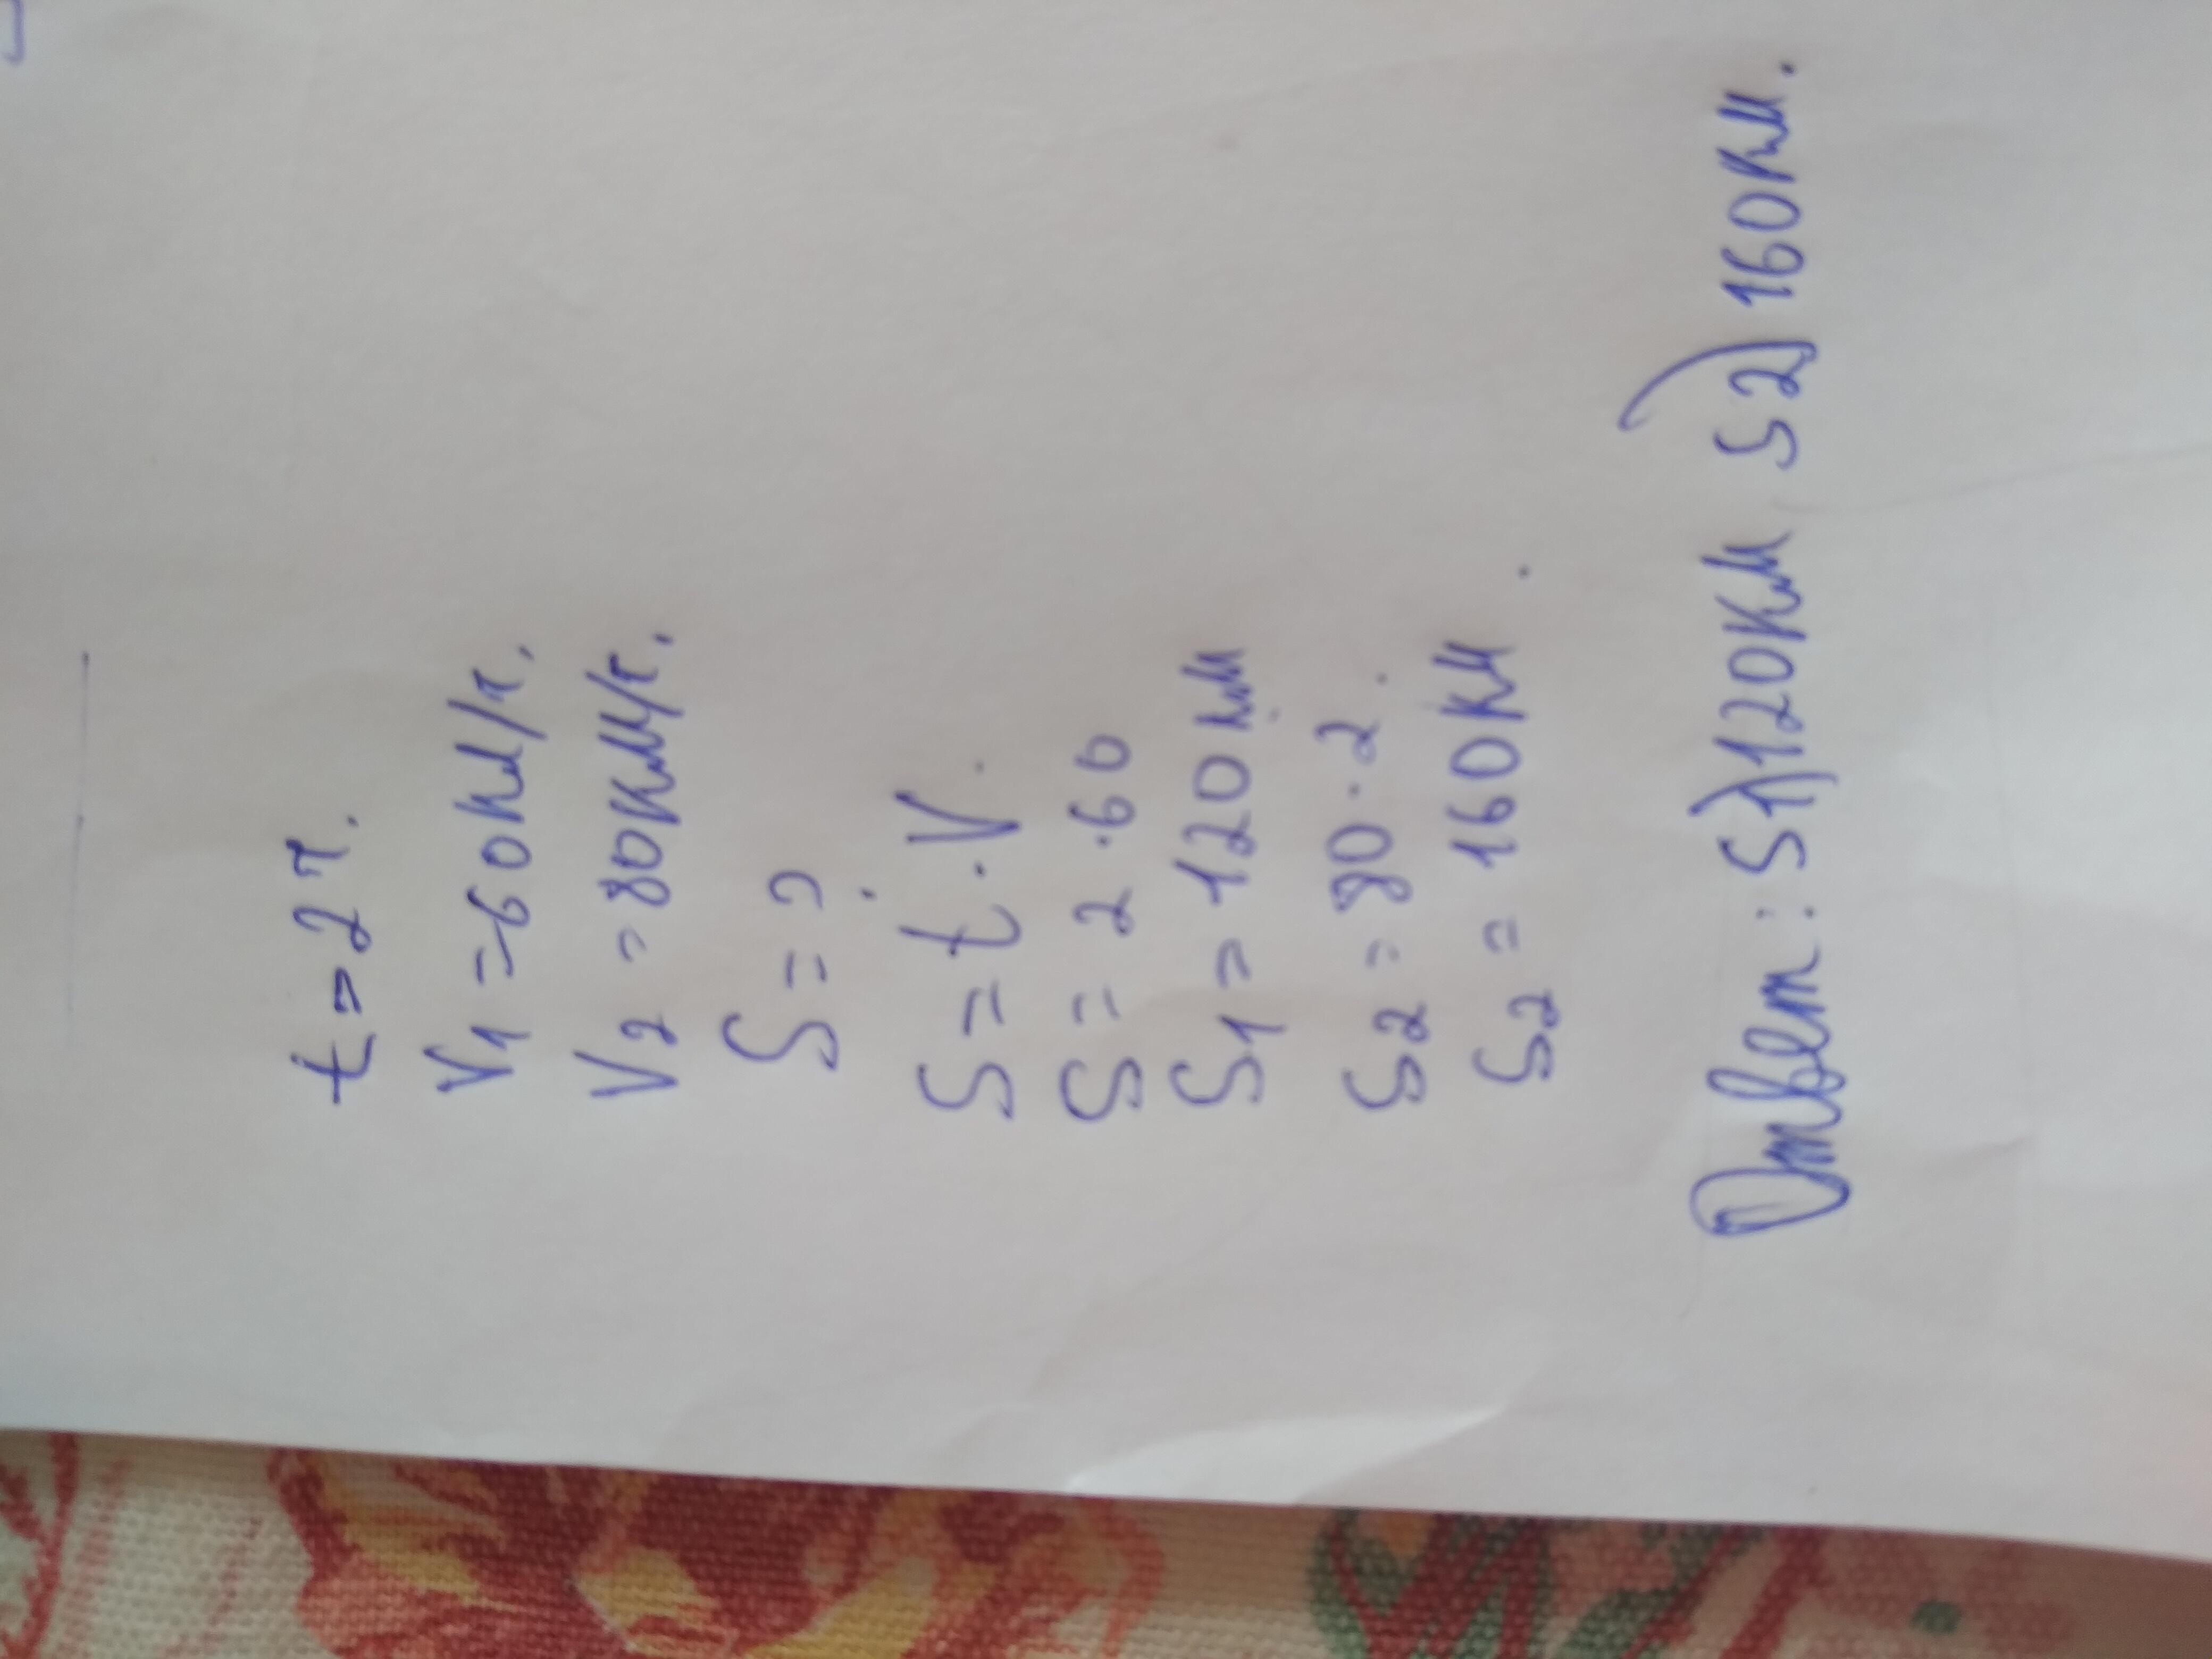 t = 2 ч.
V1 = 60 км/ч.
V2 = 80 км/ч.
S = ?
S = t · V.
S = 2 · 60
S1 = 120 км
S2 = 80 · 2.
S2 = 160 км.
Ответ: S1) 120 км, S2) 160 км.